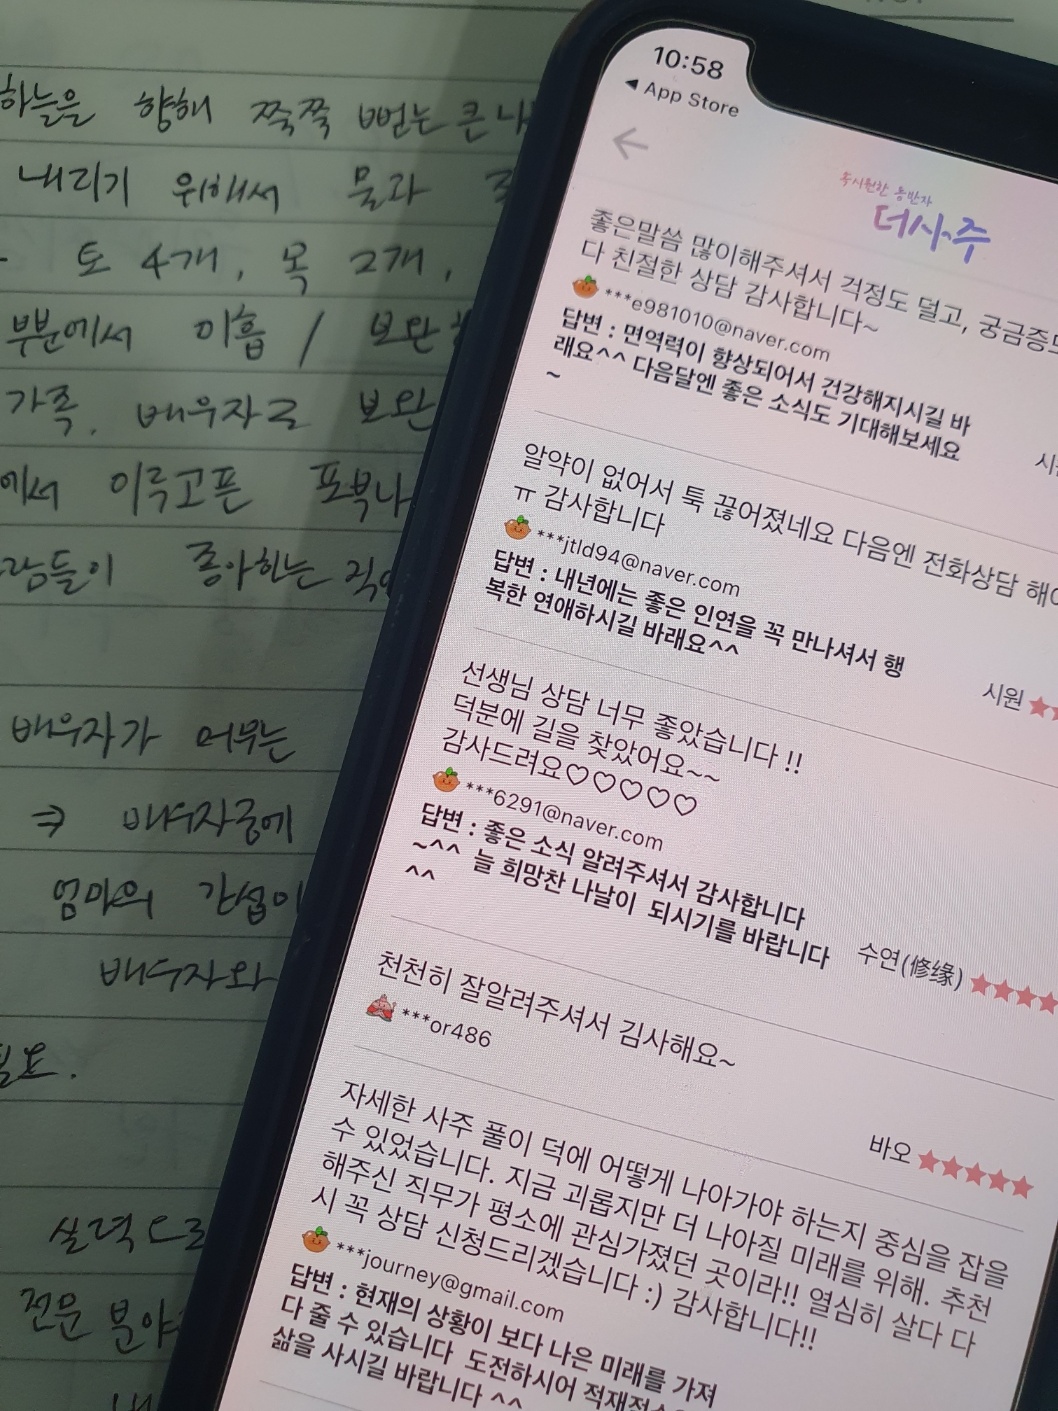 하늘을 향해 쭉쭉 뻗는 큰
내리기 위해서 물과
토 4개, 목 2개,
부분에서 이흡 / 보완
가족, 배우자로 보완
에서 이루고픈 포부나
람들이 좋아하는
배우자가 머무는
⇒ 배우자궁에
엄마의 간섭이
배우자와
필요.
실력으로
전문 분야
10:58
◀ App Store
←
속시원한 동반자
더사주
좋은말씀 많이해주셔서 걱정도 덜고, 궁금증도
다 친절한 상담 감사합니다~
***e981010@naver.com
답변 : 면역력이 향상되어서 건강해지시길 바
래요^^ 다음달엔 좋은 소식도 기대해보세요
~
알약이 없어서 툭 끊어졌네요 다음엔 전화상담 해야
ㅠ 감사합니다
***jtld94@naver.com
답변 : 내년에는 좋은 인연을 꼭 만나셔서 행
복한 연애하시길 바래요^^
시원 ★
선생님 상담 너무 좋았습니다 !!
덕분에 길을 찾았어요~~
감사드려요♡♡♡♡♡
***6291@naver.com
답변 : 좋은 소식 알려주셔서 감사합니다
~^^ 늘 희망찬 나날이 되시기를 바랍니다
^^
수연(修缘) ★★★★
천천히 잘알려주셔서 김사해요~
***or486
바오 ★★★★★
자세한 사주 풀이 덕에 어떻게 나아가야 하는지 중심을 잡을
수 있었습니다. 지금 괴롭지만 더 나아질 미래를 위해. 추천
해주신 직무가 평소에 관심가졌던 곳이라!! 열심히 살다 다
시 꼭 상담 신청드리겠습니다 :) 감사합니다!!
***journey@gmail.com
답변 : 현재의 상황이 보다 나은 미래를 가져
다 줄 수 있습니다 도전하시어
삶을 사시길 바랍니다 ^^